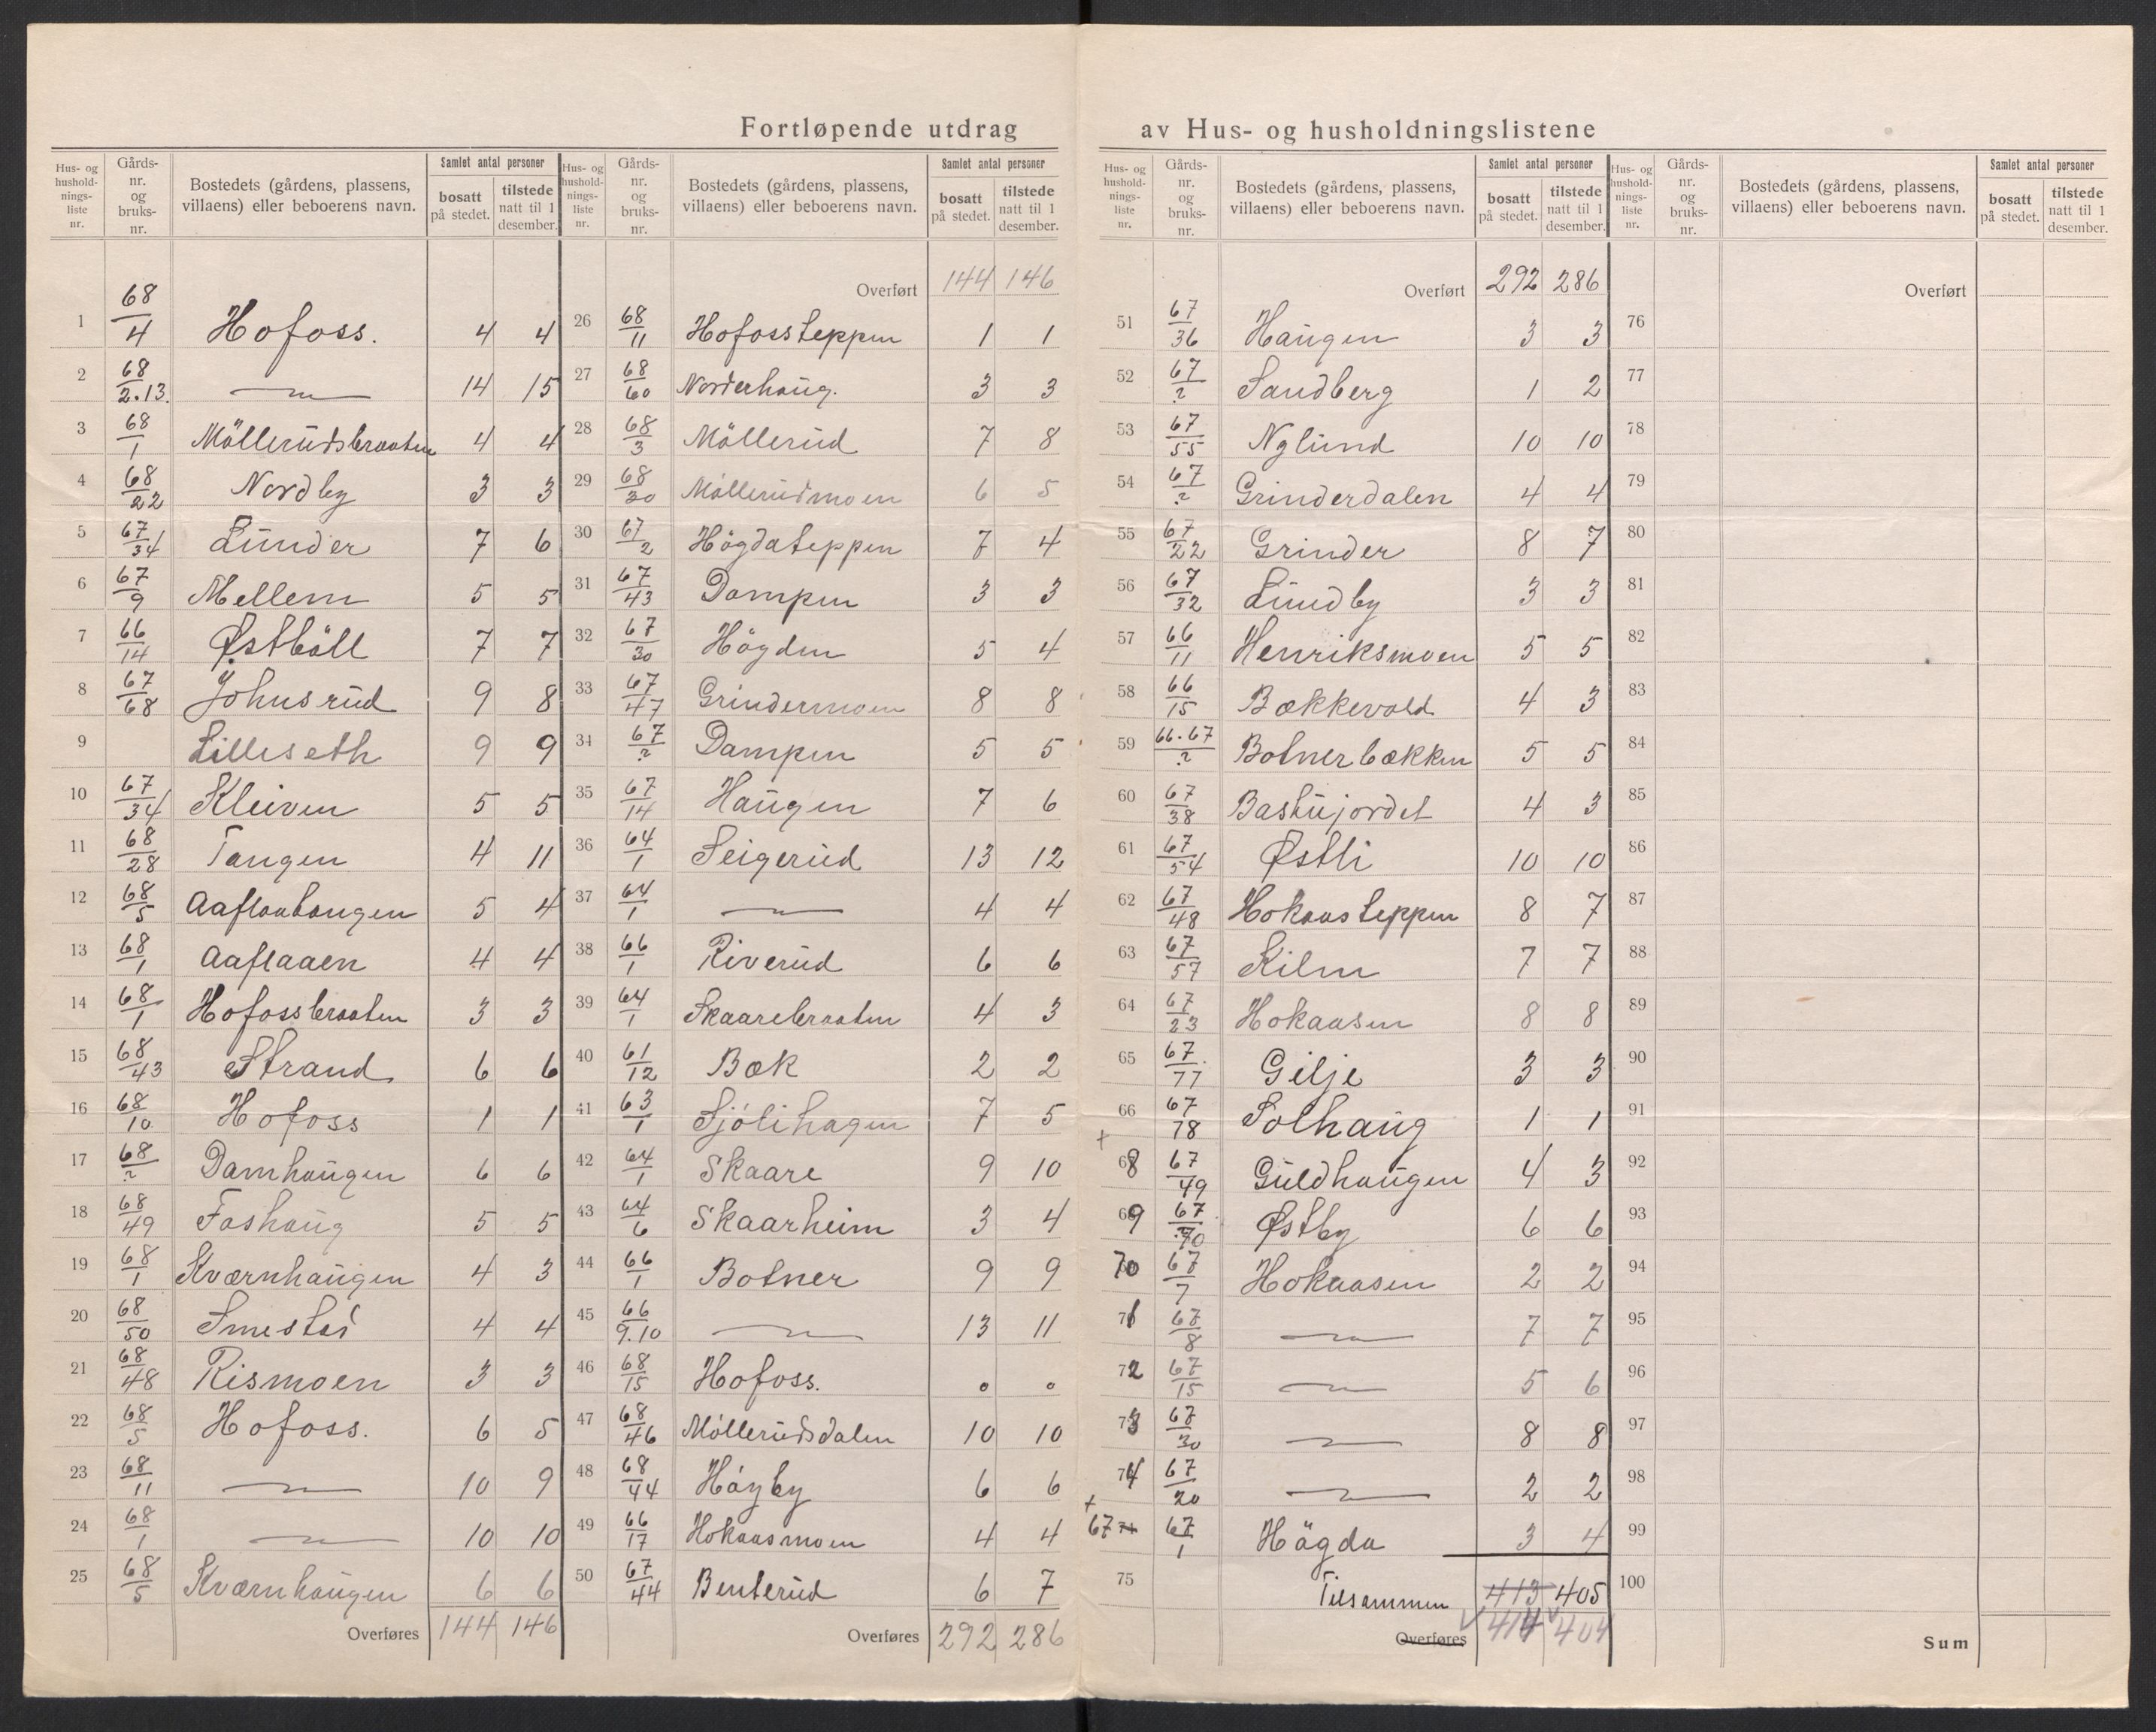 Fortløpende utdrag av Hus- og husholdningslistene
Hus- og husholdnings-liste nr. | Gårds-nr. og bruks-nr. | Bostedets (gårdens, plassens, villaens) eller beboerens navn. | Samlet antal personer bosatt på stedet. | tilstede natt til 1 desember.
1 68/4 Hofoss. 4 4
2 68/2.13. — 14 15
3 68/1 Möllerudsbraaten 4 4
4 68/22 Nordby 3 3
5 67/34 Lunder 7 6
6 67/9 Mellem 5 5
7 66/14 Østböll 7 7
8 67/68 Johnsrud 9 8
9 Lilleseth 9 9
10 67/34 Kleiven 5 5
11 68/28 Tangen 4 11
12 68/5 Aaflaatangen 5 4
13 68/1 Aaflaaen 4 4
14 68/1 Hofossbraaten 3 3
15 68/43 Strand 6 6
16 68/10 Hofoss 1 1
17 68/? Damhaugen 6 6
18 68/49 Foshaug 5 5
19 68/1 Kværnhaugen 4 3
20 68/50 Smestad 4 4
21 68/48 Rismoen 3 3
22 68/5 Hofoss. 6 5
23 68/11 — 10 9
24 68/1 — 10 10
25 68/5 Kværnhaugen 6 6
Overføres 144 146
Hus- og husholdnings-liste nr. | Gårds-nr. og bruks-nr. | Bostedets (gårdens, plassens, villaens) eller beboerens navn. | Samlet antal personer bosatt på stedet. | tilstede natt til 1 desember.
Overført 144 146
26 68/11 Hofossteppen 1 1
27 68/60 Norderhaug. 3 3
28 68/3 Möllerud 7 8
29 68/30 Möllerudmoen 6 5
30 67/2 Högdateppen 7 4
31 67/43 Dampen 3 3
32 67/30 Högden 5 4
33 67/47 Grindermoen 8 8
34 67/? Dampen 5 5
35 67/14 Haugen 7 6
36 64/1 Seigerud 13 12
37 64/1 — 4 4
38 66/1 Riverud 6 6
39 64/1 Skaarebraaten 4 3
40 61/12 Bæk 2 2
41 63/1 Sjölihagen 7 5
42 64/1 Skaare 9 10
43 64/6 Skaarheim 3 4
44 66/1 Botner 9 9
45 66/9.10 — 13 11
46 68/15 Hofoss. 0 0
47 68/46 Möllerudsdalen 10 10
48 68/44 Höyby 6 6
49 66/17 Hokaasmoen 4 4
50 67/44 Benterud 6 7
Overføres 292 286
Hus- og husholdnings-liste nr. | Gårds-nr. og bruks-nr. | Bostedets (gårdens, plassens, villaens) eller beboerens navn. | Samlet antal personer bosatt på stedet. | tilstede natt til 1 desember.
Overført 292 286
51 67/36 Haugen 3 3
52 67/? Sandberg 1 2
53 67/55 Nylund 10 10
54 67/? Grinderdalen 4 4
55 67/22 Grinder 8 7
56 67/32 Lundby 3 3
57 66/11 Henriksmoen 5 5
58 66/15 Bækkevold 4 3
59 66.67/? Botnerbækken 5 5
60 67/38 Bastujordet 4 3
61 67/54 Østli 10 10
62 67/48 Hokaasteppen 8 7
63 67/57 Kiln 7 7
64 67/23 Hokaasen 8 8
65 67/77 Gilje 3 3
66 67/78 Solhaug 1 1
+
68 67/49 Guldhaugen 4 3
69 67/70 Østby 6 6
70 67/7 Hokaasen 2 2
71 67/8 — 7 7
72 67/15 — 5 6
73 67/30 — 8 8
74 67/20 — 2 2
+
67 74 67/1 Högda 3 4
75 Tilsammen 413 405
Overføres 414 404
Hus- og husholdnings-liste nr. | Gårds-nr. og bruks-nr. | Bostedets (gårdens, plassens, villaens) eller beboerens navn. | Samlet antal personer bosatt på stedet. | tilstede natt til 1 desember.
Overført
76
77
78
79
80
81
82
83
84
85
86
87
88
89
90
91
92
93
94
95
96
97
98
99
100
Sum